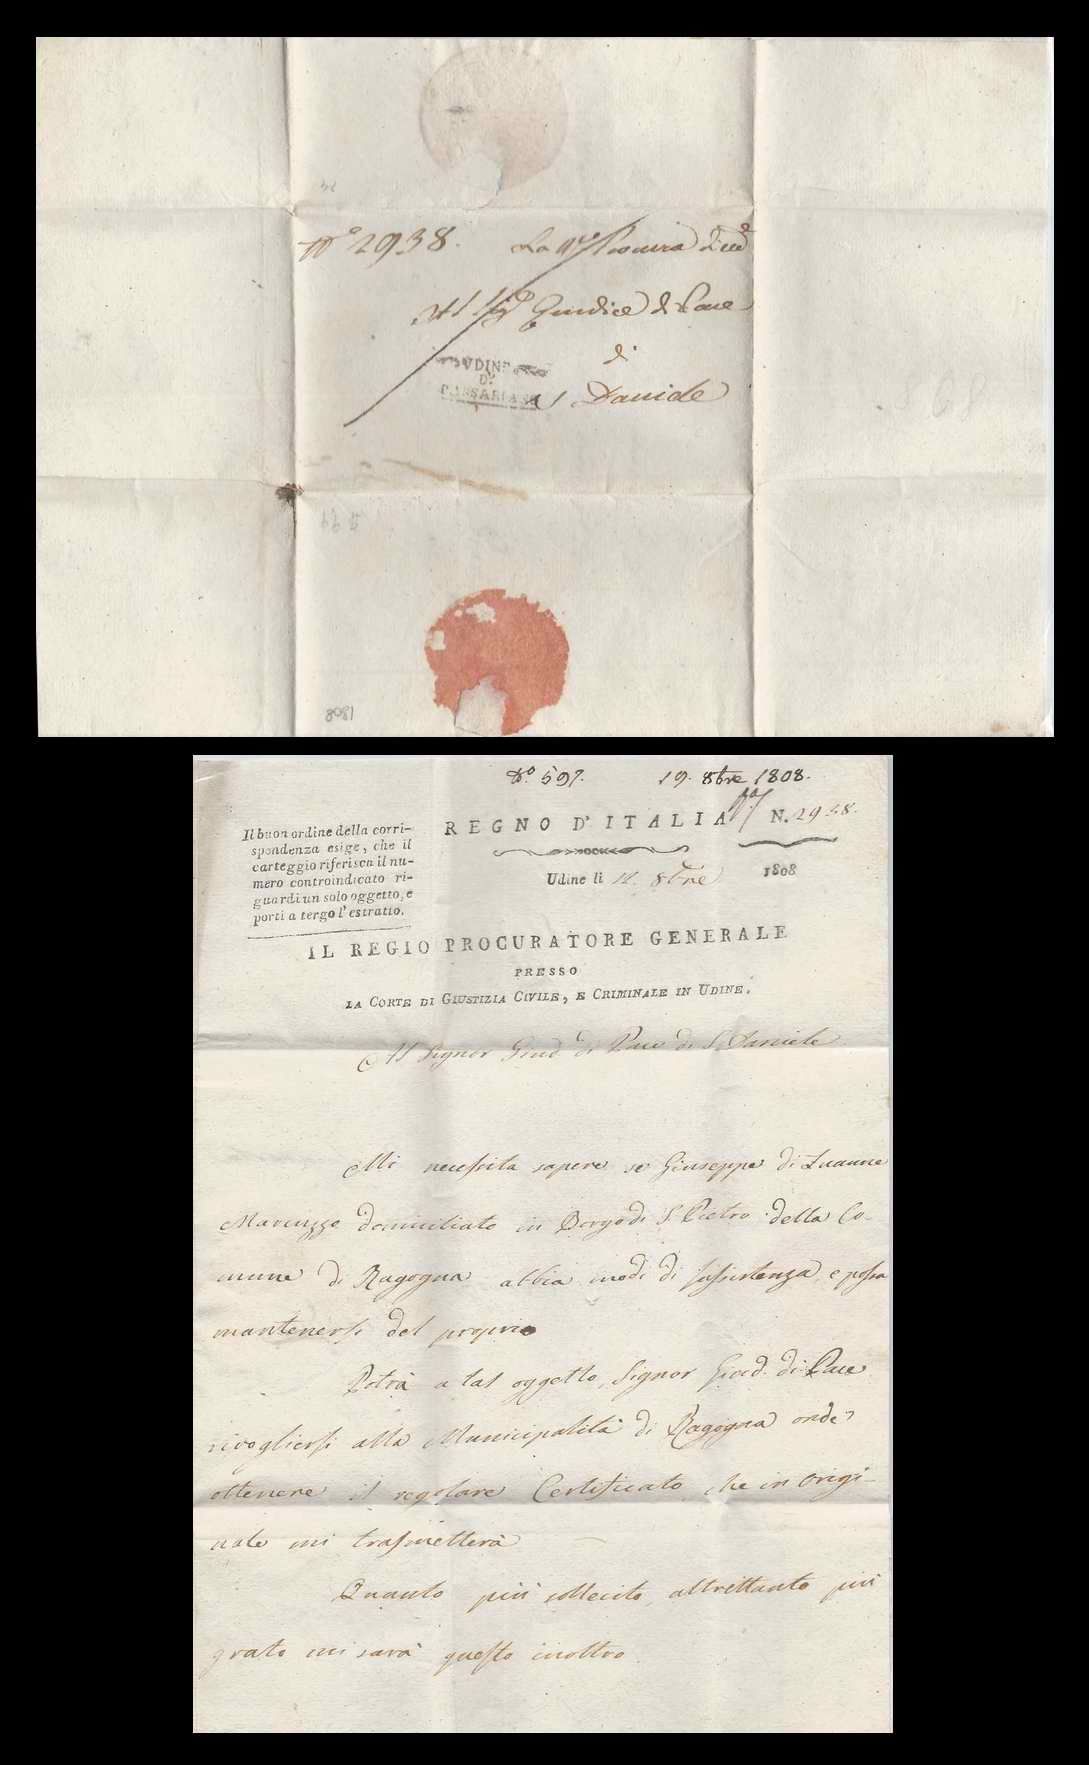 N.º 2938. La Rª Procura
Al Sigr Giudice di Pace
di
S Daniele
UDINE
D.º
PASSARIANO
1808
N.º 597. 19. 8bre 1808.
Il buon ordine della corri-
spondenza esige, che il
carteggio riferisca il nu-
mero controindicato ri-
guardi un solo oggetto, e
porti a tergo l'estratto.
REGNO D'ITALIA
N. 2938.
Udine li 8bre 1808
IL REGIO PROCURATORE GENERALE
PRESSO
LA CORTE DI GIUSTIZIA CIVILE, E CRIMINALE IN UDINE.
Al Signor Giud. di Pace di S. Daniele
Mi necessita sapere se Giuseppe di Zuanne
Marcuzzo domiciliato in Borgo di S. Pietro della Co-
mune di Ragogna abbia modi di sussistenza, e possa
mantenersi del proprio
Potrà a tal oggetto, Signor Giud. di Pace
rivogliersi alla Municipalità di Ragogna onde
ottenere il regolare Certificato, che in origi-
nale mi trasmetterà
Quanto più sollecito, altrettanto più
grato mi sarà questo inoltro.